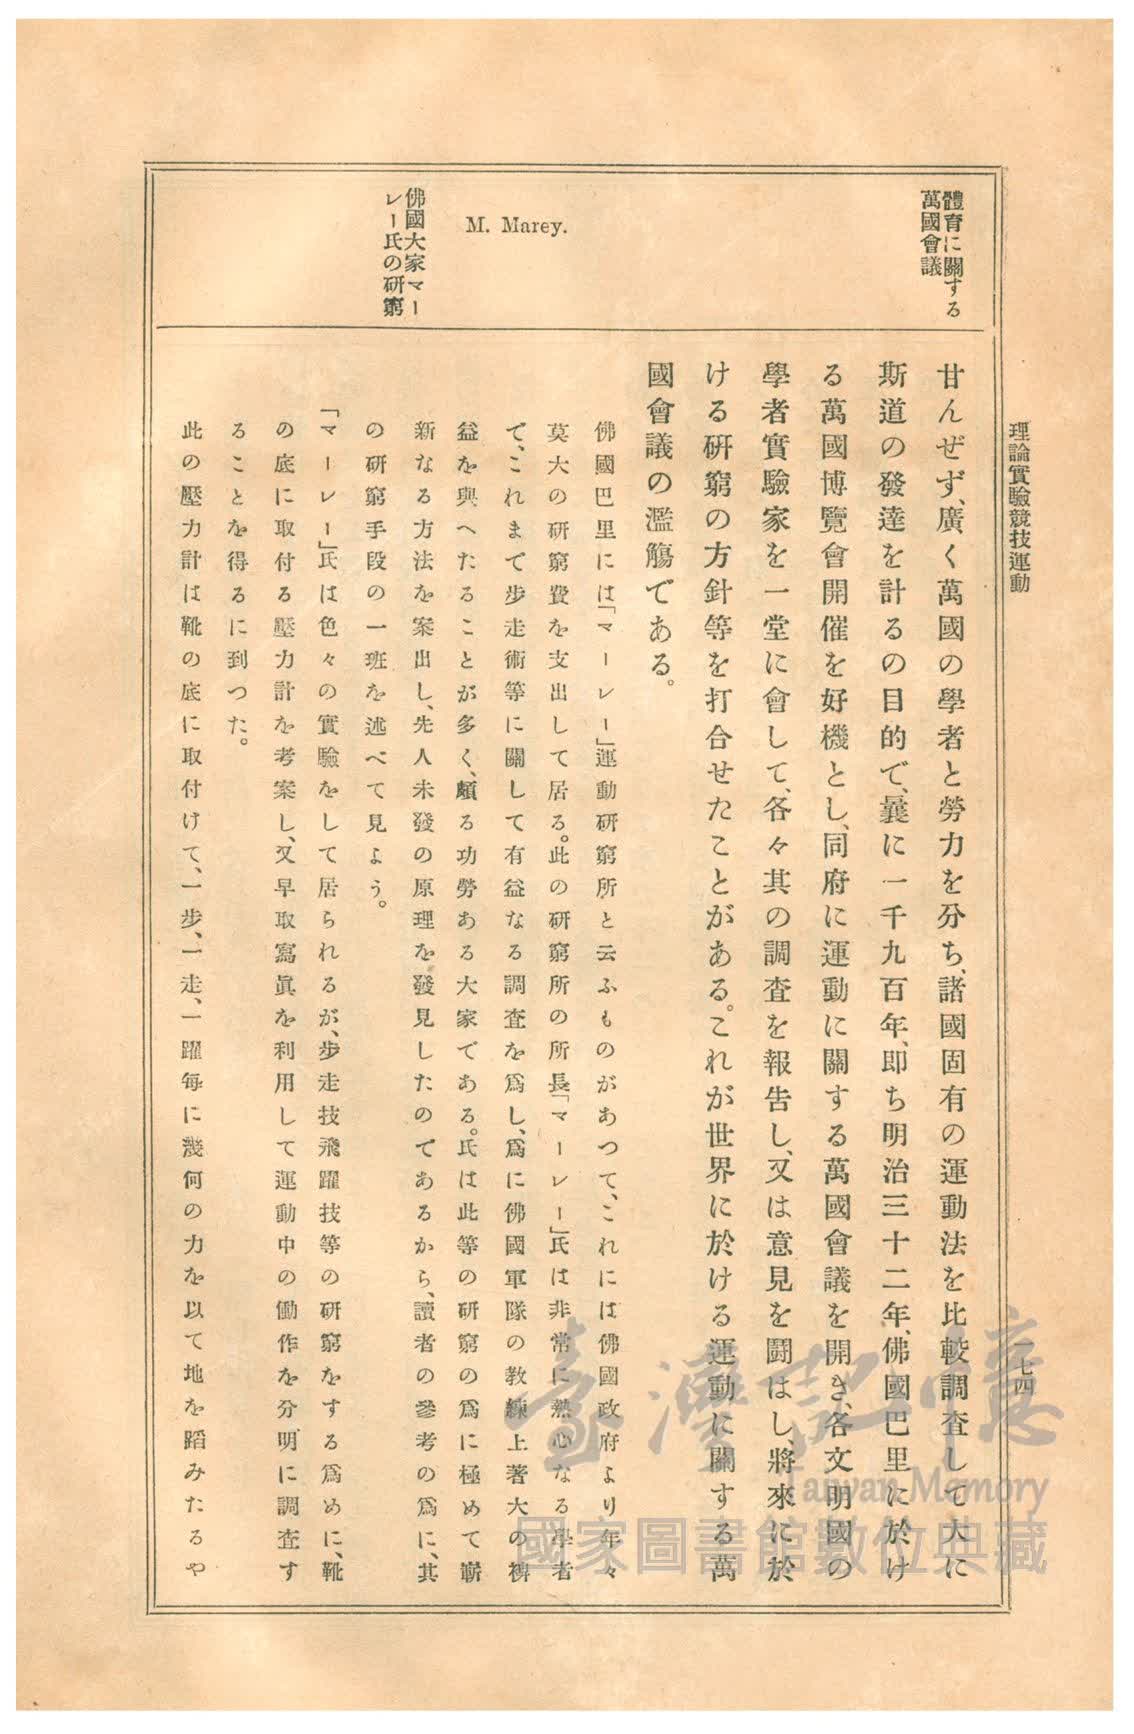 理論實驗競技運動
一七四
體育に關する
萬國會議
M. Marey.
佛國大家マー
レー氏の研窮
甘んぜず、廣く萬國の學者と勞力を分ち、諸國固有の運動法を比較調査して大に
斯道の發達を計るの目的で、曩に一千九百年、即ち明治三十二年、佛國巴里に於け
る萬國博覽會開催を好機とし、同府に運動に關する萬國會議を開き、各文明國の
學者實驗家を一堂に會して、各々其の調査を報告し、又は意見を鬪はし、將來に於
ける研窮の方針等を打合せたことがある。これが世界に於ける運動に關する萬
國會議の濫觴である。
佛國巴里には「マーレー」運動研窮所と云ふものがあつて、これには佛國政府より年々
莫大の研窮費を支出して居る。此の研窮所の所長「マーレー」氏は非常に熱心なる學者
で、これまで步走術等に關して有益なる調査を爲し、爲に佛國軍隊の敎練上著大の裨
益を與へたることが多く、頗る功勞ある大家である。氏は此等の研窮の爲に極めて嶄
新なる方法を案出し、先人未發の原理を發見したのであるから、讀者の參考の爲に、其
の研窮手段の一班を述べて見よう。
「マーレー」氏は色々の實驗をして居られるが、步走技飛躍技等の研窮をする爲めに、靴
の底に取付る壓力計を考案し、又早取寫眞を利用して運動中の働作を分明に調査す
ることを得るに到つた。
此の壓力計は靴の底に取付けて、一步、一走、一躍每に幾何の力を以て地を蹈みたるや
臺灣記憶
Taiwan Memory
國家圖書館數位典藏